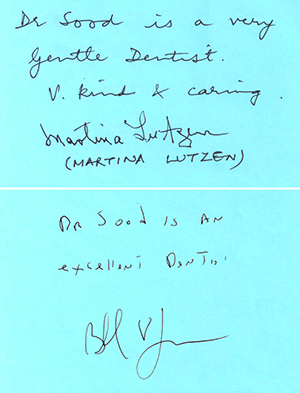 Dr Sood is a very
Gentle Dentist.
V. kind & caring.
Martina Lutzen
(MARTINA LUTZEN)
DR Sood IS AN
excellent DenTis